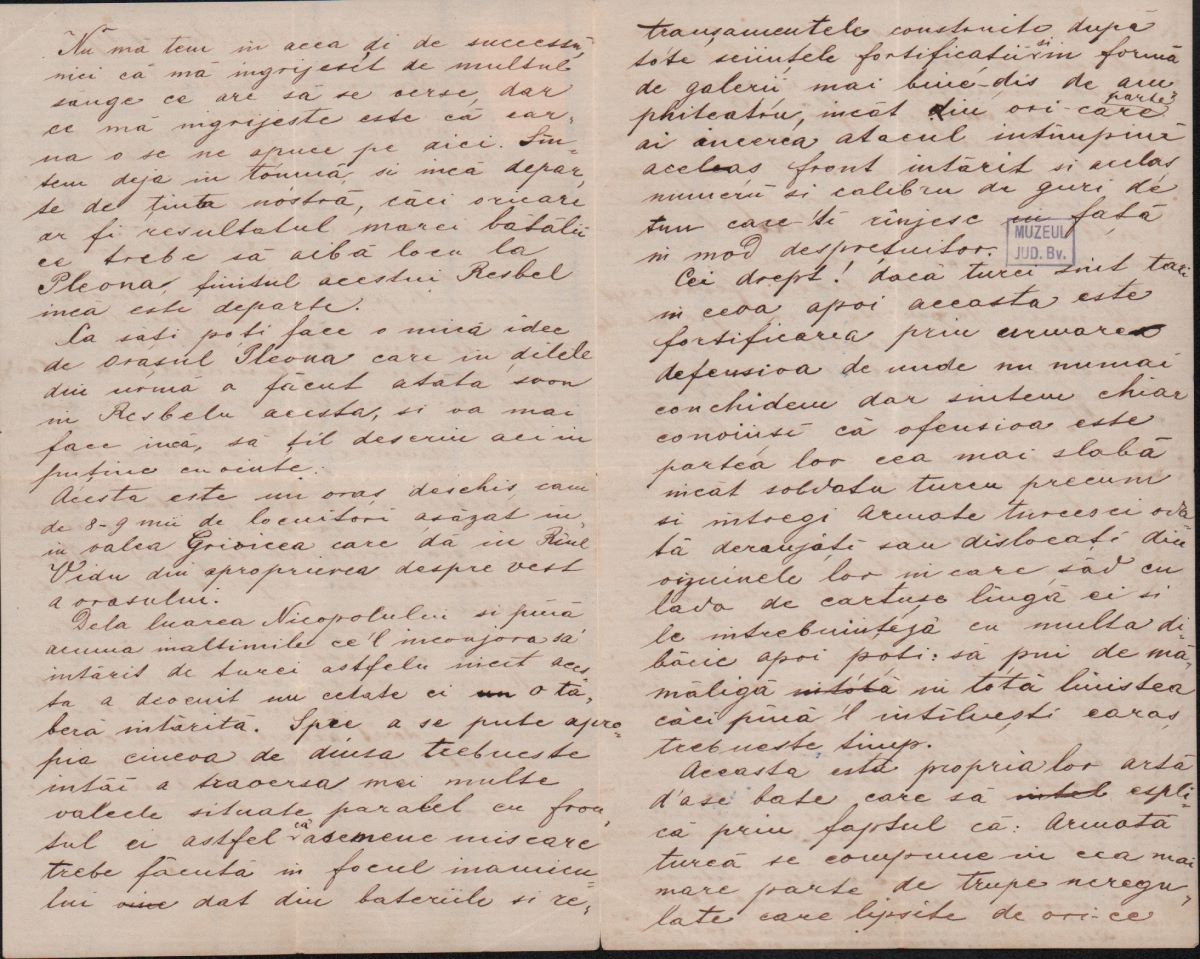 Nu mă tem in acea di de successu,
nici că mă ingrijesit de multul
sânge ce are să se verse, dar
ce mă ingrijeste este că ear-
na o se ne apuce pe aici. Sin-
tem deja in tómnă, si incă depar-
te de ținta nóstră, căci oricare
ar fi resultatul marei bătălii
ce trebe să aibă locu la
Plevna, finitul acestui Resbel
incă este departe.
Ca sați poți face o mică idee
de orasul Plevna care in dilele
din urma a făcut atăta svon
in Resbelu acesta, si va mai
face incă, să țil descriu aci in
puține cuvinte:
Acesta este un oras deschis, cam
de 8-9 mii de locuitori asăzat in,
in valea Grivicea care dă in Riul
Vidu din apropierea despre vest
a orasului.
Dela luarea Nicopolului si pină
acuma inaltimile ce'l inconjora sa'
intărit de turci astfelu incit aces-
ta a devenit nu cetate ci un o tă-
beră intărită. Spre a se pute apro-
pia cineva de dinsa trebueste
intăi a traversa mai multe
valecle situate paralel cu fron-
tul ei astfel că asemene miscare
trebe făcută in focul inamicu-
lui dat din bateriile si re-
transamentele construite după
tóte sciințele fortificatii si in formă
de galerii mai bine-dis de am
phiteatru, incăt din ori-care parte
ai incerca atacul intimpină
acelas front intărit si acelas
numeru si calibru de guri de
tun care-ti rinjesc in față
in mod despretuitor.
MUZEUL
JUD. Bv.
Cei drept! daca turci sint tari
in ceva apoi aceasta este
fortificarea prin urmare
defensiva de unde nu numai
conchidem dar sintem chiar
convinsi ca ofensiva este
partea lor cea mai slabă
incăt soldatu turcu precum
si intregi armate turcesci oda
tă deranjați sau dislocați din
viziunele lor in care săd cu
lada de cartuse lingă ei si
le intrebuințéjă cu multa di-
băcie apoi poți: să pui de mă-
măligă intótă in tótă linistea
căci pină'l intilnești earas
trebueste timp.
Aceasta esta propria lor artă
d'ase bate care să espli-
că prin faptul că: Armată
turcă se compune in cea mai
mare parte de trupe neregu-
late care lipsite de ori-ce